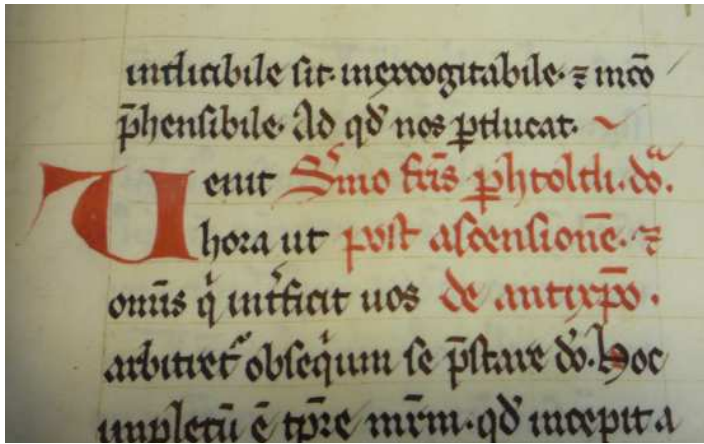 intlicibile sit. inexcogitabile. ⁊ incō
p̄hensibile. Ad qd̓ nos ꝑducat.
Uenit Sermo fr̄is ꝑhtoldi. do.
hora ut post ascensionē. ⁊
om̄is q̇ int̓ficit uos de antixp̄o.
arbitret᷑ obseqium se p̄stare do. Hoc
impletū ē tp̄re mr̄m. qd̓ incepit a